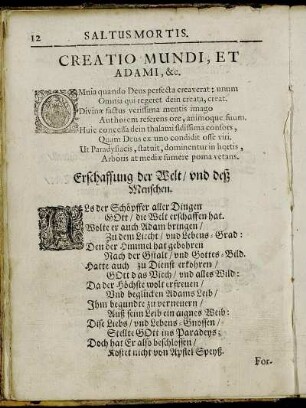 12 SALTUS MORTIS.
CREATIO MUNDI, ET
ADAMI, &c.
OMnia quando Deus perfecta creaverat; unum
Omnia qui regeret dein creata, creat.
Divinæ factus verissima mentis imago
Authorem referens ore, animoque suum.
Huic concessa dein thalami fidissima consors,
Quam Deus ex uno condidit osse viri.
Ut Paradysiacis, statuit, dominentur in hortis,
Arboris at mediæ sumere poma vetans.
Erschaffung der Welt/ und deß
Menschen.
ALs der Schöpffer aller Dingen
GOtt/ die Welt erschaffen hat.
Wolte er auch Adam bringen/
Zu dem Liecht/ und Lebens-Grad:
Den der Himmel hat gebohren
Nach der Gstalt/ und Gottes-Bild.
Hatte auch zu Dienst erkohren/
GOtt das Vich/ und alles Wild:
Da der Höchste wolt erfreuen/
Und beglücken Adams Leib/
Ihm begundte zu verneuern/
Auß seim Leib ein aignes Weib:
Dise Liebs/ und Lebens-Gnossen/
Stellte GOtt ins Paradeys:
Doch hat Er also beschlossen/
Kostet nicht von Apffel Speyß.
For-